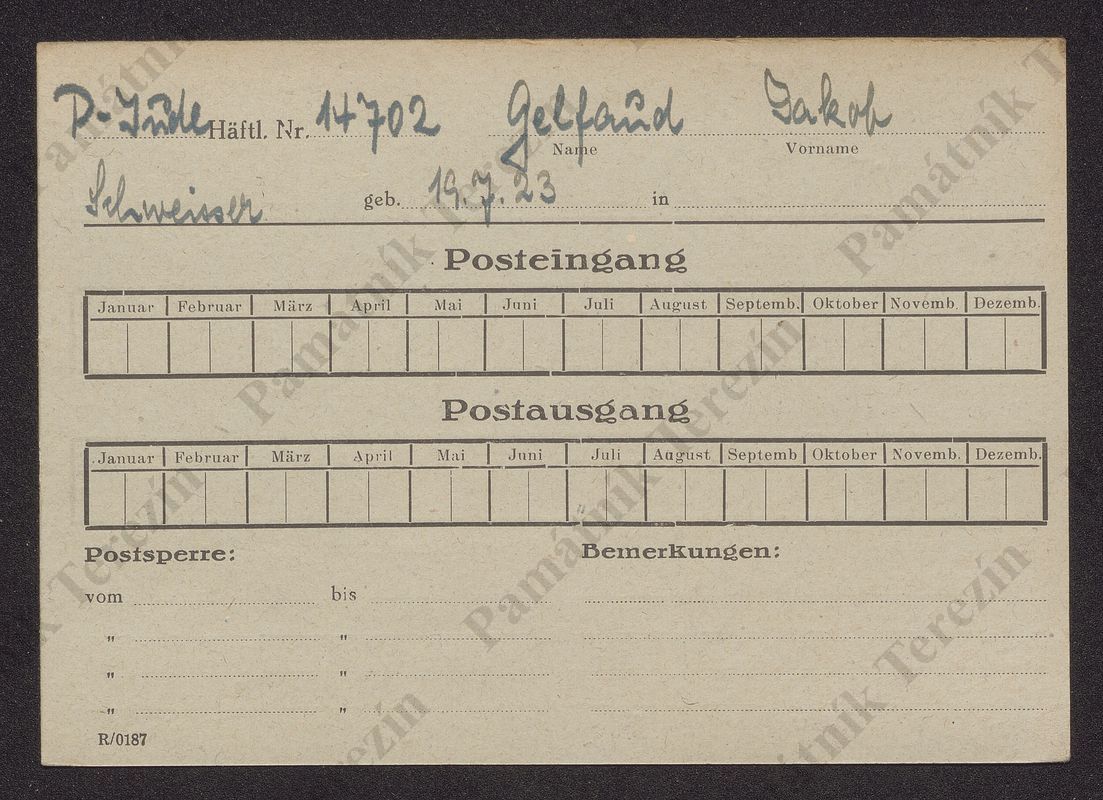 P-Jude Häftl. Nr. 14702 Gelfand Jakob
Name Vorname
Schweisser geb. 19.7.23 in
Posteingang
Januar Februar März April Mai Juni Juli August Septemb. Oktober Novemb. Dezemb.
Postausgang
Januar Februar März April Mai Juni Juli August Septemb Oktober Novemb. Dezemb.
Postsperre: Bemerkungen:
vom bis
" "
" "
" "
R/0187
Památník Terezín
Památník Terezín
Památník Terezín
Památník Terezín